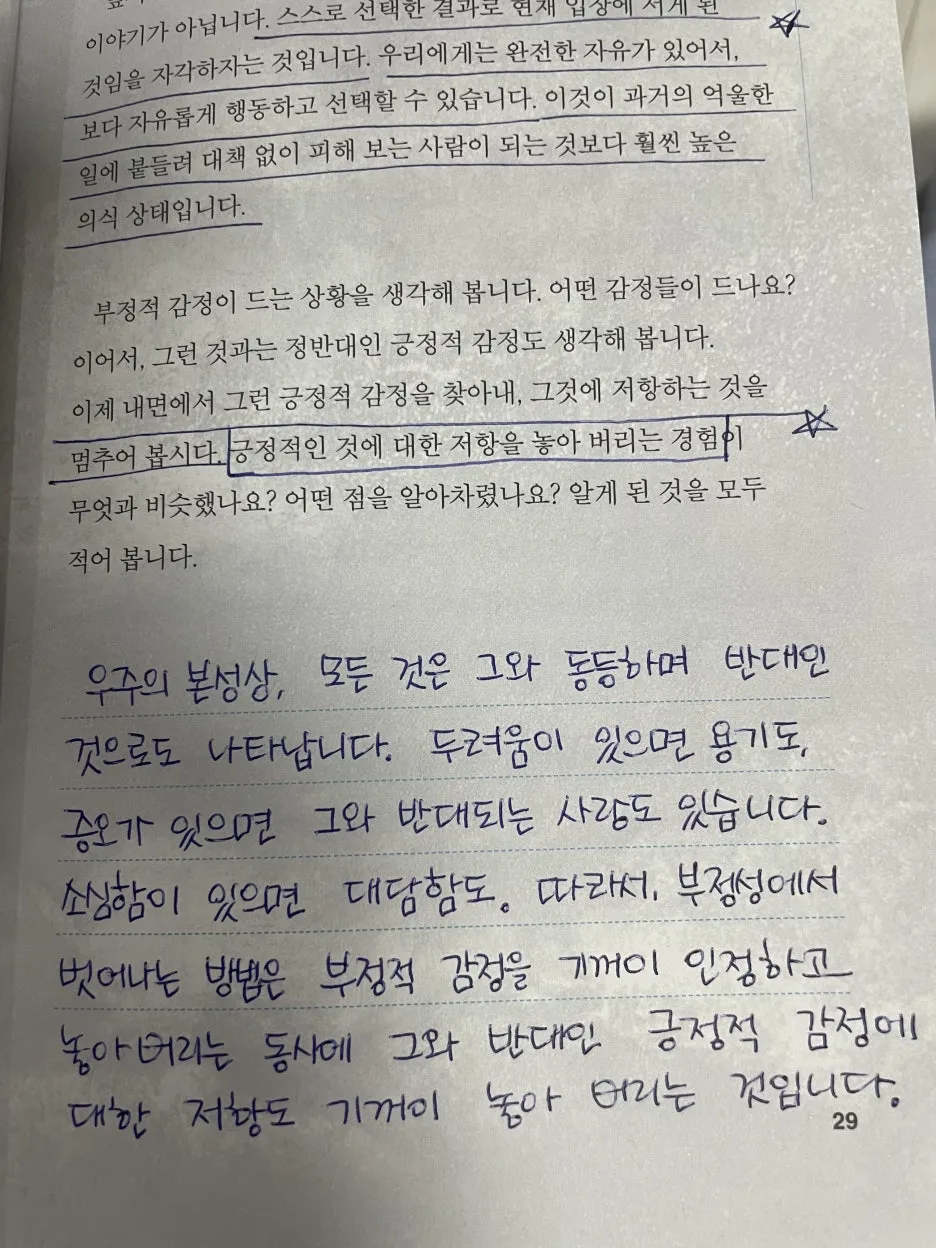 이야기가 아닙니다. 스스로 선택한 결과로 현재 입장에 서게 된
것임을 자각하자는 것입니다. 우리에게는 완전한 자유가 있어서,
보다 자유롭게 행동하고 선택할 수 있습니다. 이것이 과거의 억울한
일에 붙들려 대책 없이 피해 보는 사람이 되는 것보다 훨씬 높은
의식 상태입니다.
부정적 감정이 드는 상황을 생각해 봅니다. 어떤 감정들이 드나요?
이어서, 그런 것과는 정반대인 긍정적 감정도 생각해 봅니다.
이제 내면에서 그런 긍정적 감정을 찾아내, 그것에 저항하는 것을
멈추어 봅시다. 긍정적인 것에 대한 저항을 놓아 버리는 경험이
무엇과 비슷했나요? 어떤 점을 알아차렸나요? 알게 된 것을 모두
적어 봅니다.
우주의 본성상, 모든 것은 그와 동등하며 반대인
것으로도 나타납니다. 두려움이 있으면 용기도,
증오가 있으면 그와 반대되는 사랑도 있습니다.
소심함이 있으면 대담함도. 따라서, 부정성에서
벗어나는 방법은 부정적 감정을 기꺼이 인정하고
놓아버리는 동시에 그와 반대인 긍정적 감정에
대한 저항도 기꺼이 놓아 버리는 것입니다.
29